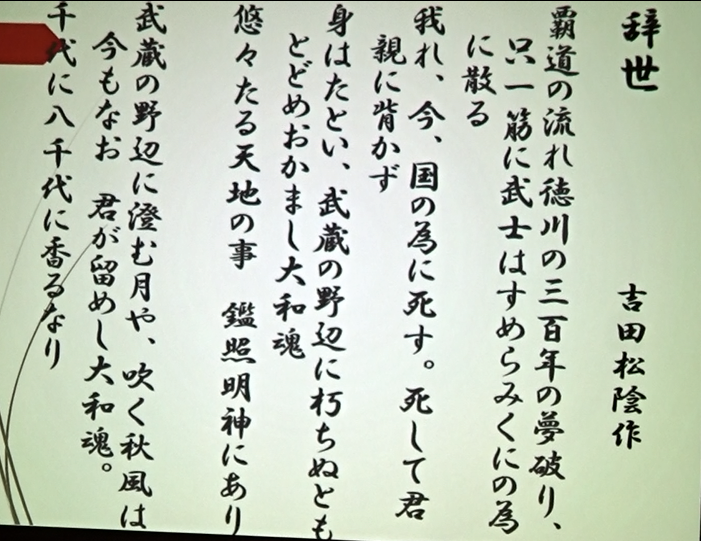 辞世
吉田松陰作
覇道の流れ徳川の三百年の夢破り、
只一筋に武士はすめらみくにの為
に散る
我れ、今、国の為に死す。死して君
親に背かず
身はたとい、武蔵の野辺に朽ちぬとも
とどめおかまし大和魂
悠々たる天地の事　鑑照明神にあり
武蔵の野辺に澄む月や、吹く秋風は
今もなお　君が留めし大和魂。
千代に八千代に香るなり